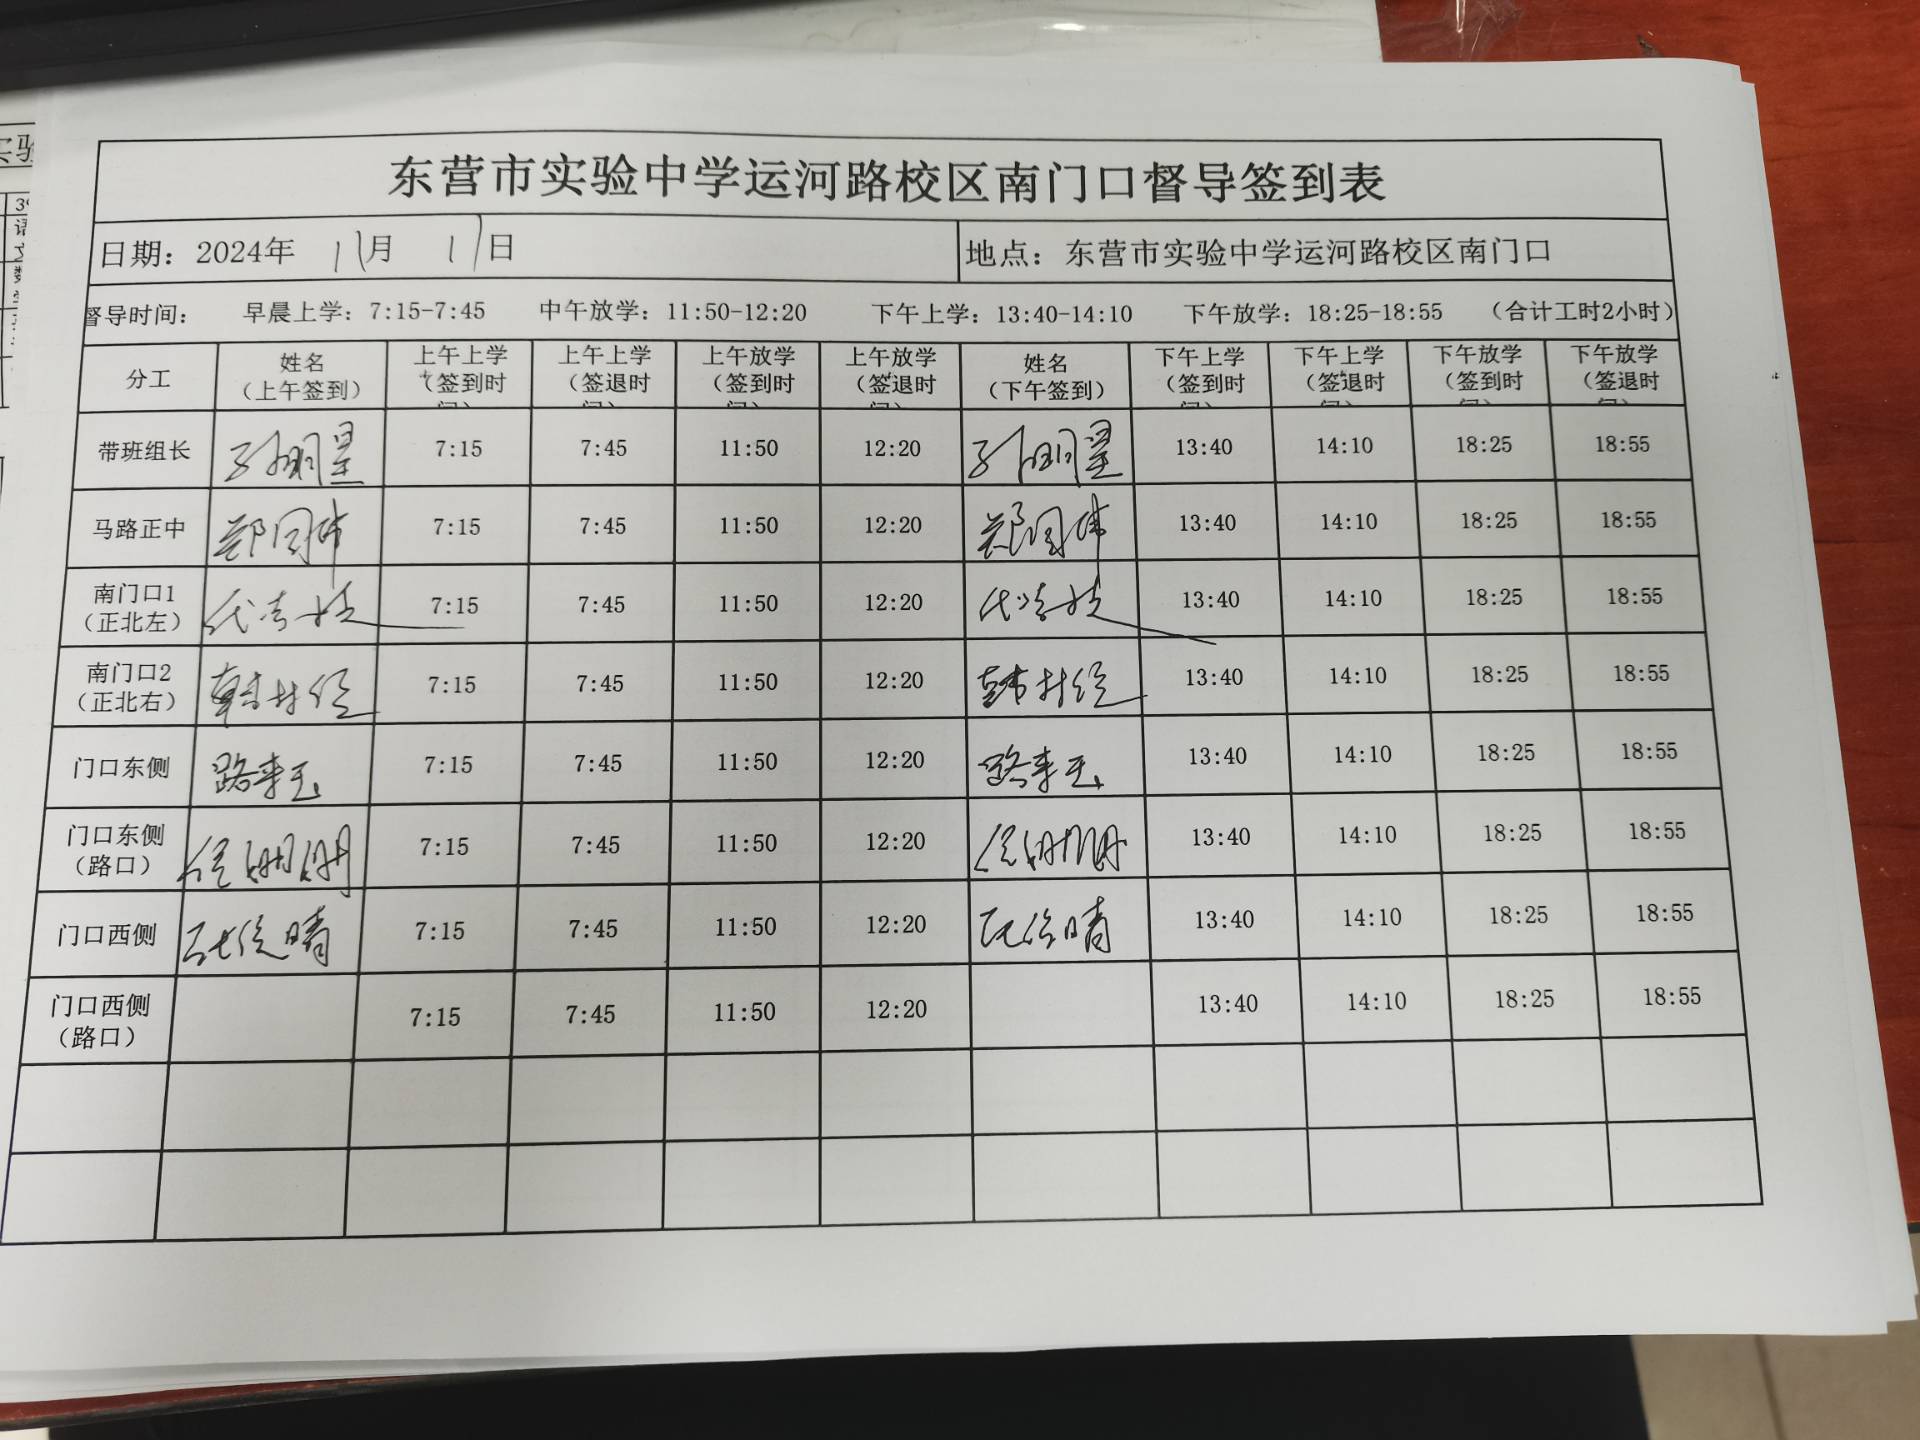 东营市实验中学运河路校区南门口督导签到表
日期：2024年 11月 11日 地点：东营市实验中学运河路校区南门口
督导时间： 早晨上学：7:15-7:45 中午放学：11:50-12:20 下午上学：13:40-14:10 下午放学：18:25-18:55 （合计工时2小时）
分工 姓名（上午签到） 上午上学（签到时间） 上午上学（签退时间） 上午放学（签到时间） 上午放学（签退时间） 姓名（下午签到） 下午上学（签到时间） 下午上学（签退时间） 下午放学（签到时间） 下午放学（签退时间）
带班组长 孙明星 7:15 7:45 11:50 12:20 孙明星 13:40 14:10 18:25 18:55
马路正中 7:15 7:45 11:50 12:20 13:40 14:10 18:25 18:55
南门口1（正北左） 7:15 7:45 11:50 12:20 13:40 14:10 18:25 18:55
南门口2（正北右） 7:15 7:45 11:50 12:20 13:40 14:10 18:25 18:55
门口东侧 7:15 7:45 11:50 12:20 13:40 14:10 18:25 18:55
门口东侧（路口） 7:15 7:45 11:50 12:20 13:40 14:10 18:25 18:55
门口西侧 7:15 7:45 11:50 12:20 13:40 14:10 18:25 18:55
门口西侧（路口） 7:15 7:45 11:50 12:20 13:40 14:10 18:25 18:55